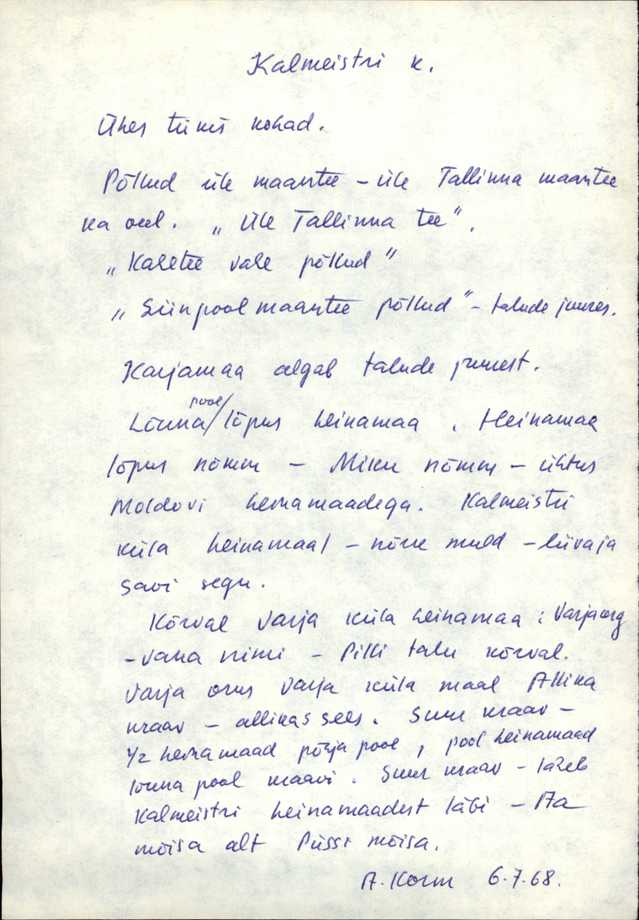 Kalmeistri k.
Ühes tükis kohad.
Põllud üle maantee – üle Tallinna maantee
ka veel. „Üle Tallinna tee".
„Kaletee vahe põllud"
„Siinpool maantee põllud" – talude juures.
Karjamaa algab talude juurest.
pool
Lõuna/lõpus heinamaa. Heinamaa
lõpus nõmm – Miku nõmm – ühtus
Moldovi heinamaadega. Kalmeistri
küla heinamaal – nõrre muld – liivaja
savi segu.
Kõrval Varja küla heinamaa: Varjaorg
– vana nimi – Pilli talu kõrval.
Varja orus Varja küla maal Allika
kraav – allikas sees. Suur kraav –
1/2 heinamaad põhja pool, pool heinamaad
lõuna pool kraavi. Suur kraav – läheb
Kalmeistri heinamaadest läbi – Aa
mõisa alt Püssi mõisa.
A. Korm 6.7.68.